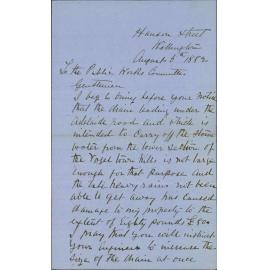 Hanson Street
Wellington
August 5th 1882
To the Public Works Committee
Gentlemen
I beg to bring before your notice
that the drain leading under the
Adelaide road and which is
intended to carry off the storm
water from the lower section of
the Vogel town Mills is not large
enough for that purpose and
the late heavy rains not been
able to get away has caused
damage to my property to the
extent of Eighty pounds £80
I pray that you will instruct
your engineer to increase the
size of the drain at once